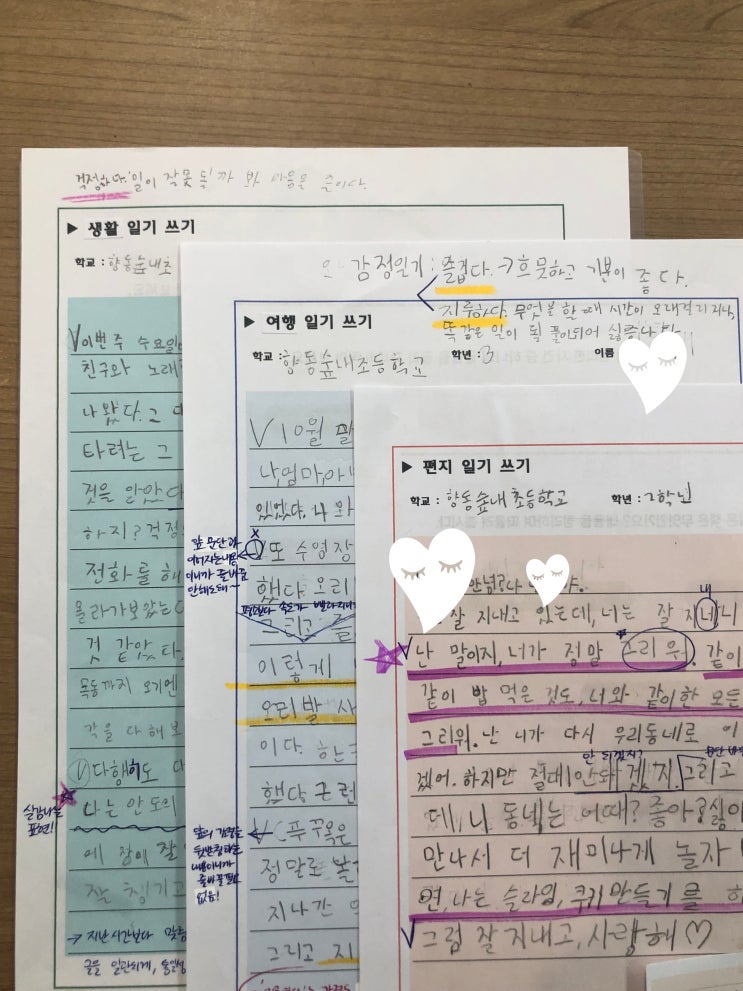 걱정하다. 일이 잘못 될까 봐 마음을 졸이다.
▶ 생활 일기 쓰기
학교 : 향동숲내초
V이번 주 수요일
친구와 노래
나왔다. 그
타려는 그
것을 알았다
하지? 걱정
전화를 해
올라가보았는
것 같았다.
목동까지 오기엔
각을 다 해 보
다행히도 다
나는 안도의
에 참에 잘
잘 챙기고
실감나는
표현!
→ 지난 시간보다 맞춤
글을 일관되게, 통일성
감정일기 : 즐겁다. → 흐뭇하고 기분이 좋다.
지루하다. 무엇을 할 때 시간이 오래걸리거나,
똑같은 일이 되풀이되어 싫증나
▶ 여행 일기 쓰기
학교 : 향동숲내초등학교 학년 : 3 이름
V 10월 말
나, 엄마, 아
있었다. 나와
또 수영장
했다. 오리
평소보다 속도가 빨라지
그리고
이렇게
오리발 사
이다. 하는
했다 그런
V (푸꾸옥은
정말로 볼
지나간
그리고 지
앞 문단과
이어지는 내용
이니까 줄바꿈
안해도 돼~
앞의 감정을
뒷받침하는
내용이니까
줄 바꿀 필요
없음!
▶ 편지 일기 쓰기
학교 : 향동숲내초등학교 학년 : 2학년
안녕
잘 지내고 있는데, 너는 잘 지네니
내
V난 말이지, 너가 정말 그리워. 같이
같이 밥 먹은 것도, 너와 같이한 모든
그리워. 난 니가 다시 우리동네로 이
안 되겠지?
겠어. 하지만 절대 안돼겠지. 그리고
데, 니 동네는 어때? 좋아
만나서 더 재미나게 놀자
연, 나는 슬라임, 쿠키 만들기를 하
V그럼 잘 지내고, 사랑해♡